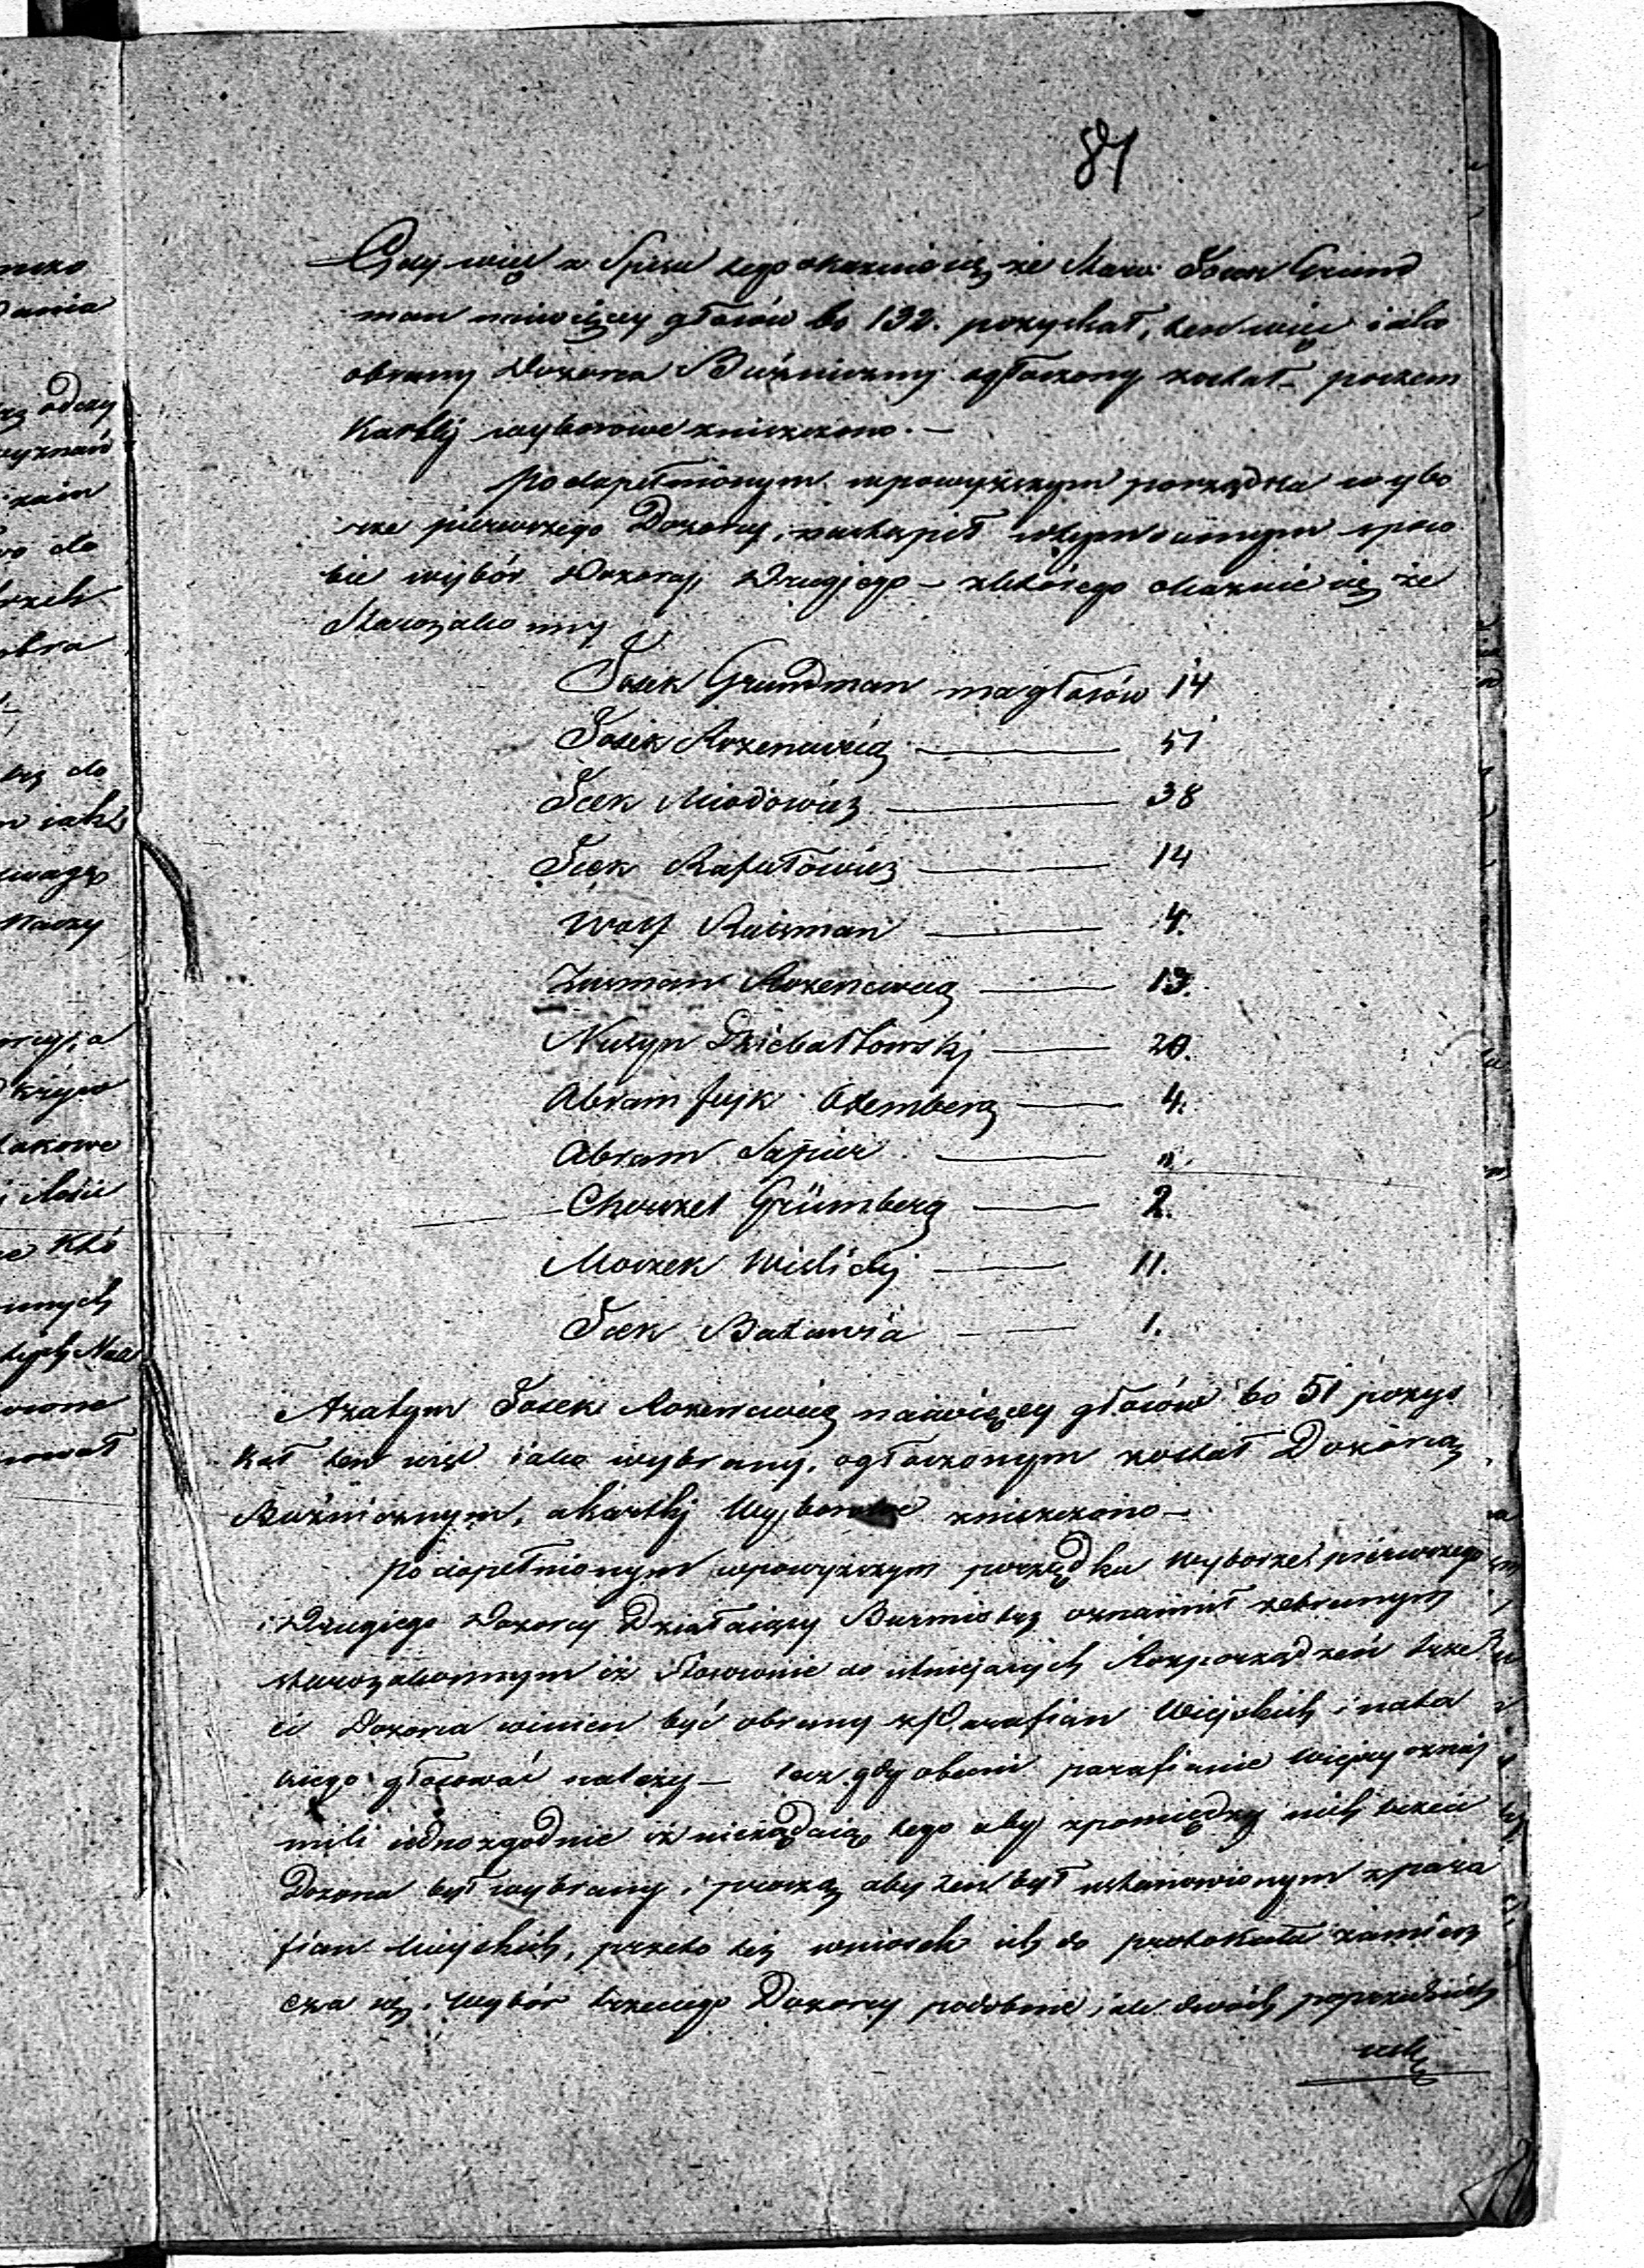 81
Gdy więc z Spisu tego okazuie się, że Staro: Josek Grund
man naiwięcey głosów bo 132. pozyskał, ten więc iako
obrany Dozorca Bóżniczny ogłoszony został – poczem
Kartki wyborowe zniszczono. –
Po dopełnionym w powyższym porządku wybo
rze pierwszego Dozorcy, nastąpił w tymże samym sposo
bie wybór Dozorcy Drugiego – z którego okazuie się, że
Starozakonny
Josek Grundman ma głosów 14
Josek Rozencwaig 51
Icek Miodowicz 38
Icek Rafałowicz 14
Wolf Ruisman 4.
Zusman Rozencwaig 13.
Nusyn Działkowski 20.
Abram Jzyk Oxemberg 4.
Abram Sapier „.
Chewzel Grümberg 2.
Moszek Wislicki 11.
Icek Batawia 1.
A zatym Josek Rozencwaig naiwięcey głosów bo 51 pozys
kał ten więc iako wybrany, ogłoszonym został Dozorcą
Bóżnicznym, a kartki Wyborowe zniszczono –
Po dopełnionym w powyższym porządku Wyborze pierwszego
i Drugiego Dozorcy Działaiący Burmistrz oznaimił zebranym
starozakonnym iż stosownie do istnieiących Rozporządzeń trze
ci Dozorca winien być obrany z Parafian Wieyskich i na ta
kiego głosować należy – lecz gdy obecni parafianie Wieyscy oznay
mili iednozgodnie iż nieżądaią tego aby z pomiędzy nich trzeci
Dozorca był wybrany i proszą aby ten był ustanowionym z para
fian mieyskich, przeto też wniosek ich do protokułu zamiesz
cza się. Wybór trzeciego Dozorcy podobnie iak dwóch poprzednich